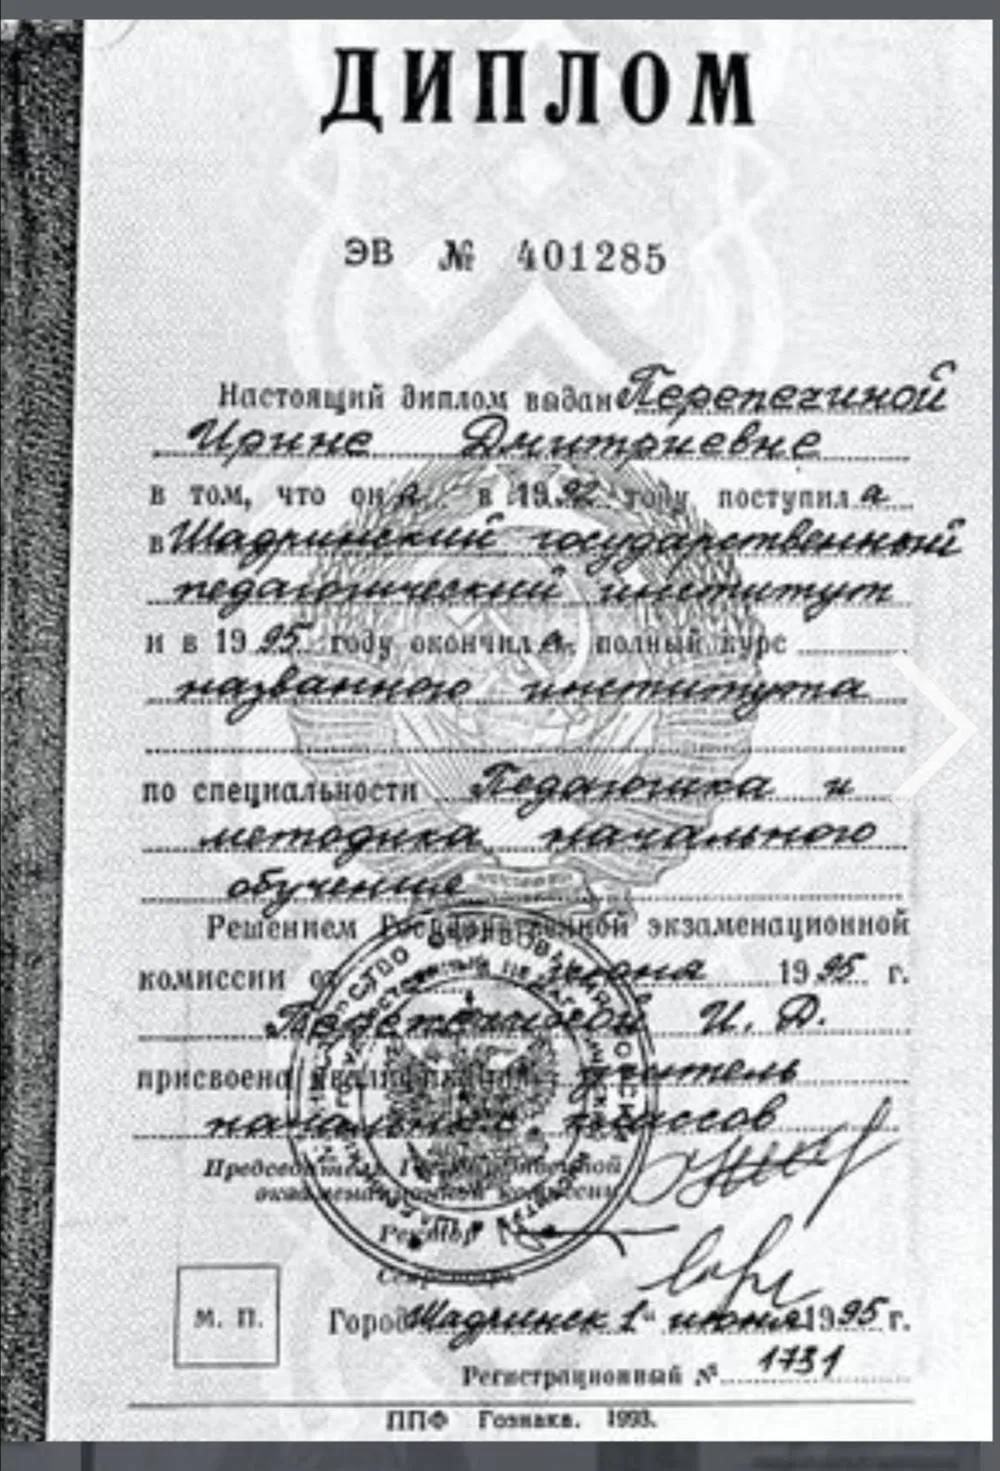 ДИПЛОМ
ЭВ № 401285
Настоящий диплом выдан Перепечиной
Ирине Дмитриевне
в том, что она в 1992 году поступила
в Шадринский государственный
педагогический институт
и в 1995 году окончила полный курс
названного института
по специальности Педагогика и
методика начального
обучение
Решением Государственной экзаменационной
комиссии от июня 1995 г.
Перепечиной И. Д.
присвоена квалификация учитель
начальных классов
Председатель Государственной
экзаменационной комиссии
Ректор
Секретарь
М. П.
Город Шадринск 1" июня 1995 г.
Регистрационный № 1731
ППФ Гознака. 1993.